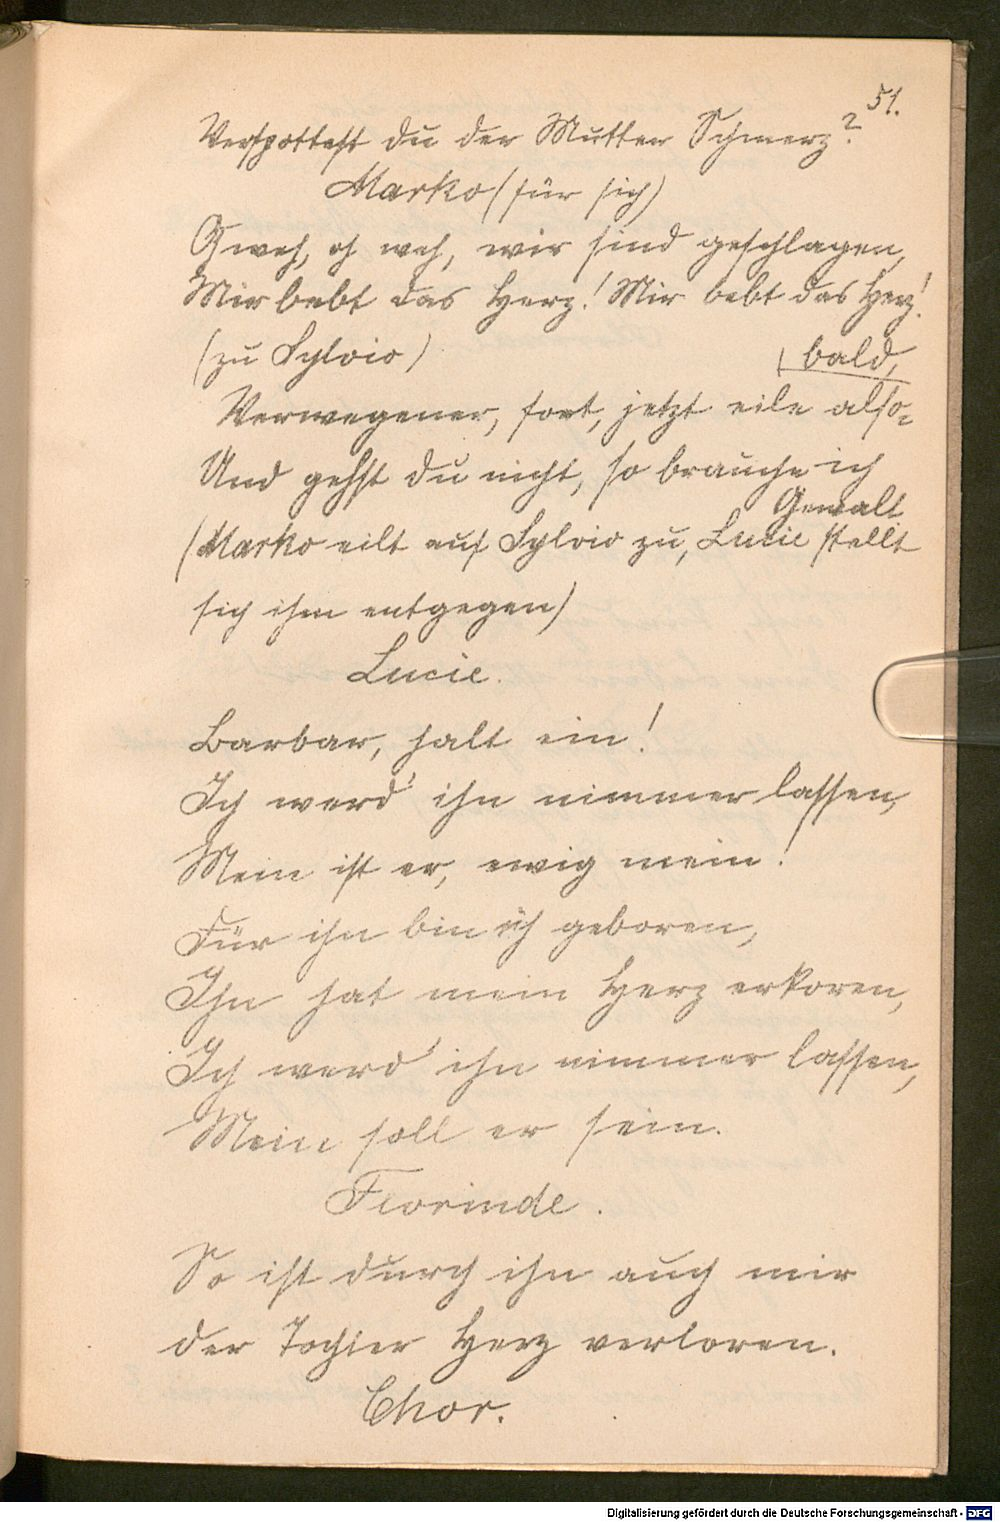 51.
Verspottest du der Mutter Schmerz?
Marko (für sich)
O weh, oh weh, wir sind geschlagen,
Mir bebt das Herz! Mir bebt das Herz!
(zu Sylvio)
bald,
Verwegener, fort, jetzt eile also-
Und gehst du nicht, so brauche ich
Gewalt
(Marko eilt auf Sylvio zu, Lucie stellt
sich ihm entgegen)
Lucie.
Barbar, halt ein!
Ich werd' ihn nimmer lassen,
Mein ist er, ewig mein!
Für ihn bin ich geboren,
Ihn hat mein Herz erkoren,
Ich werd' ihn nimmer lassen,
Mein soll er sein.
Florinde.
So ist durch ihn auch mir
der Tochter Herz verloren.
Chor.
Digitalisierung gefördert durch die Deutsche Forschungsgemeinschaft - DFG